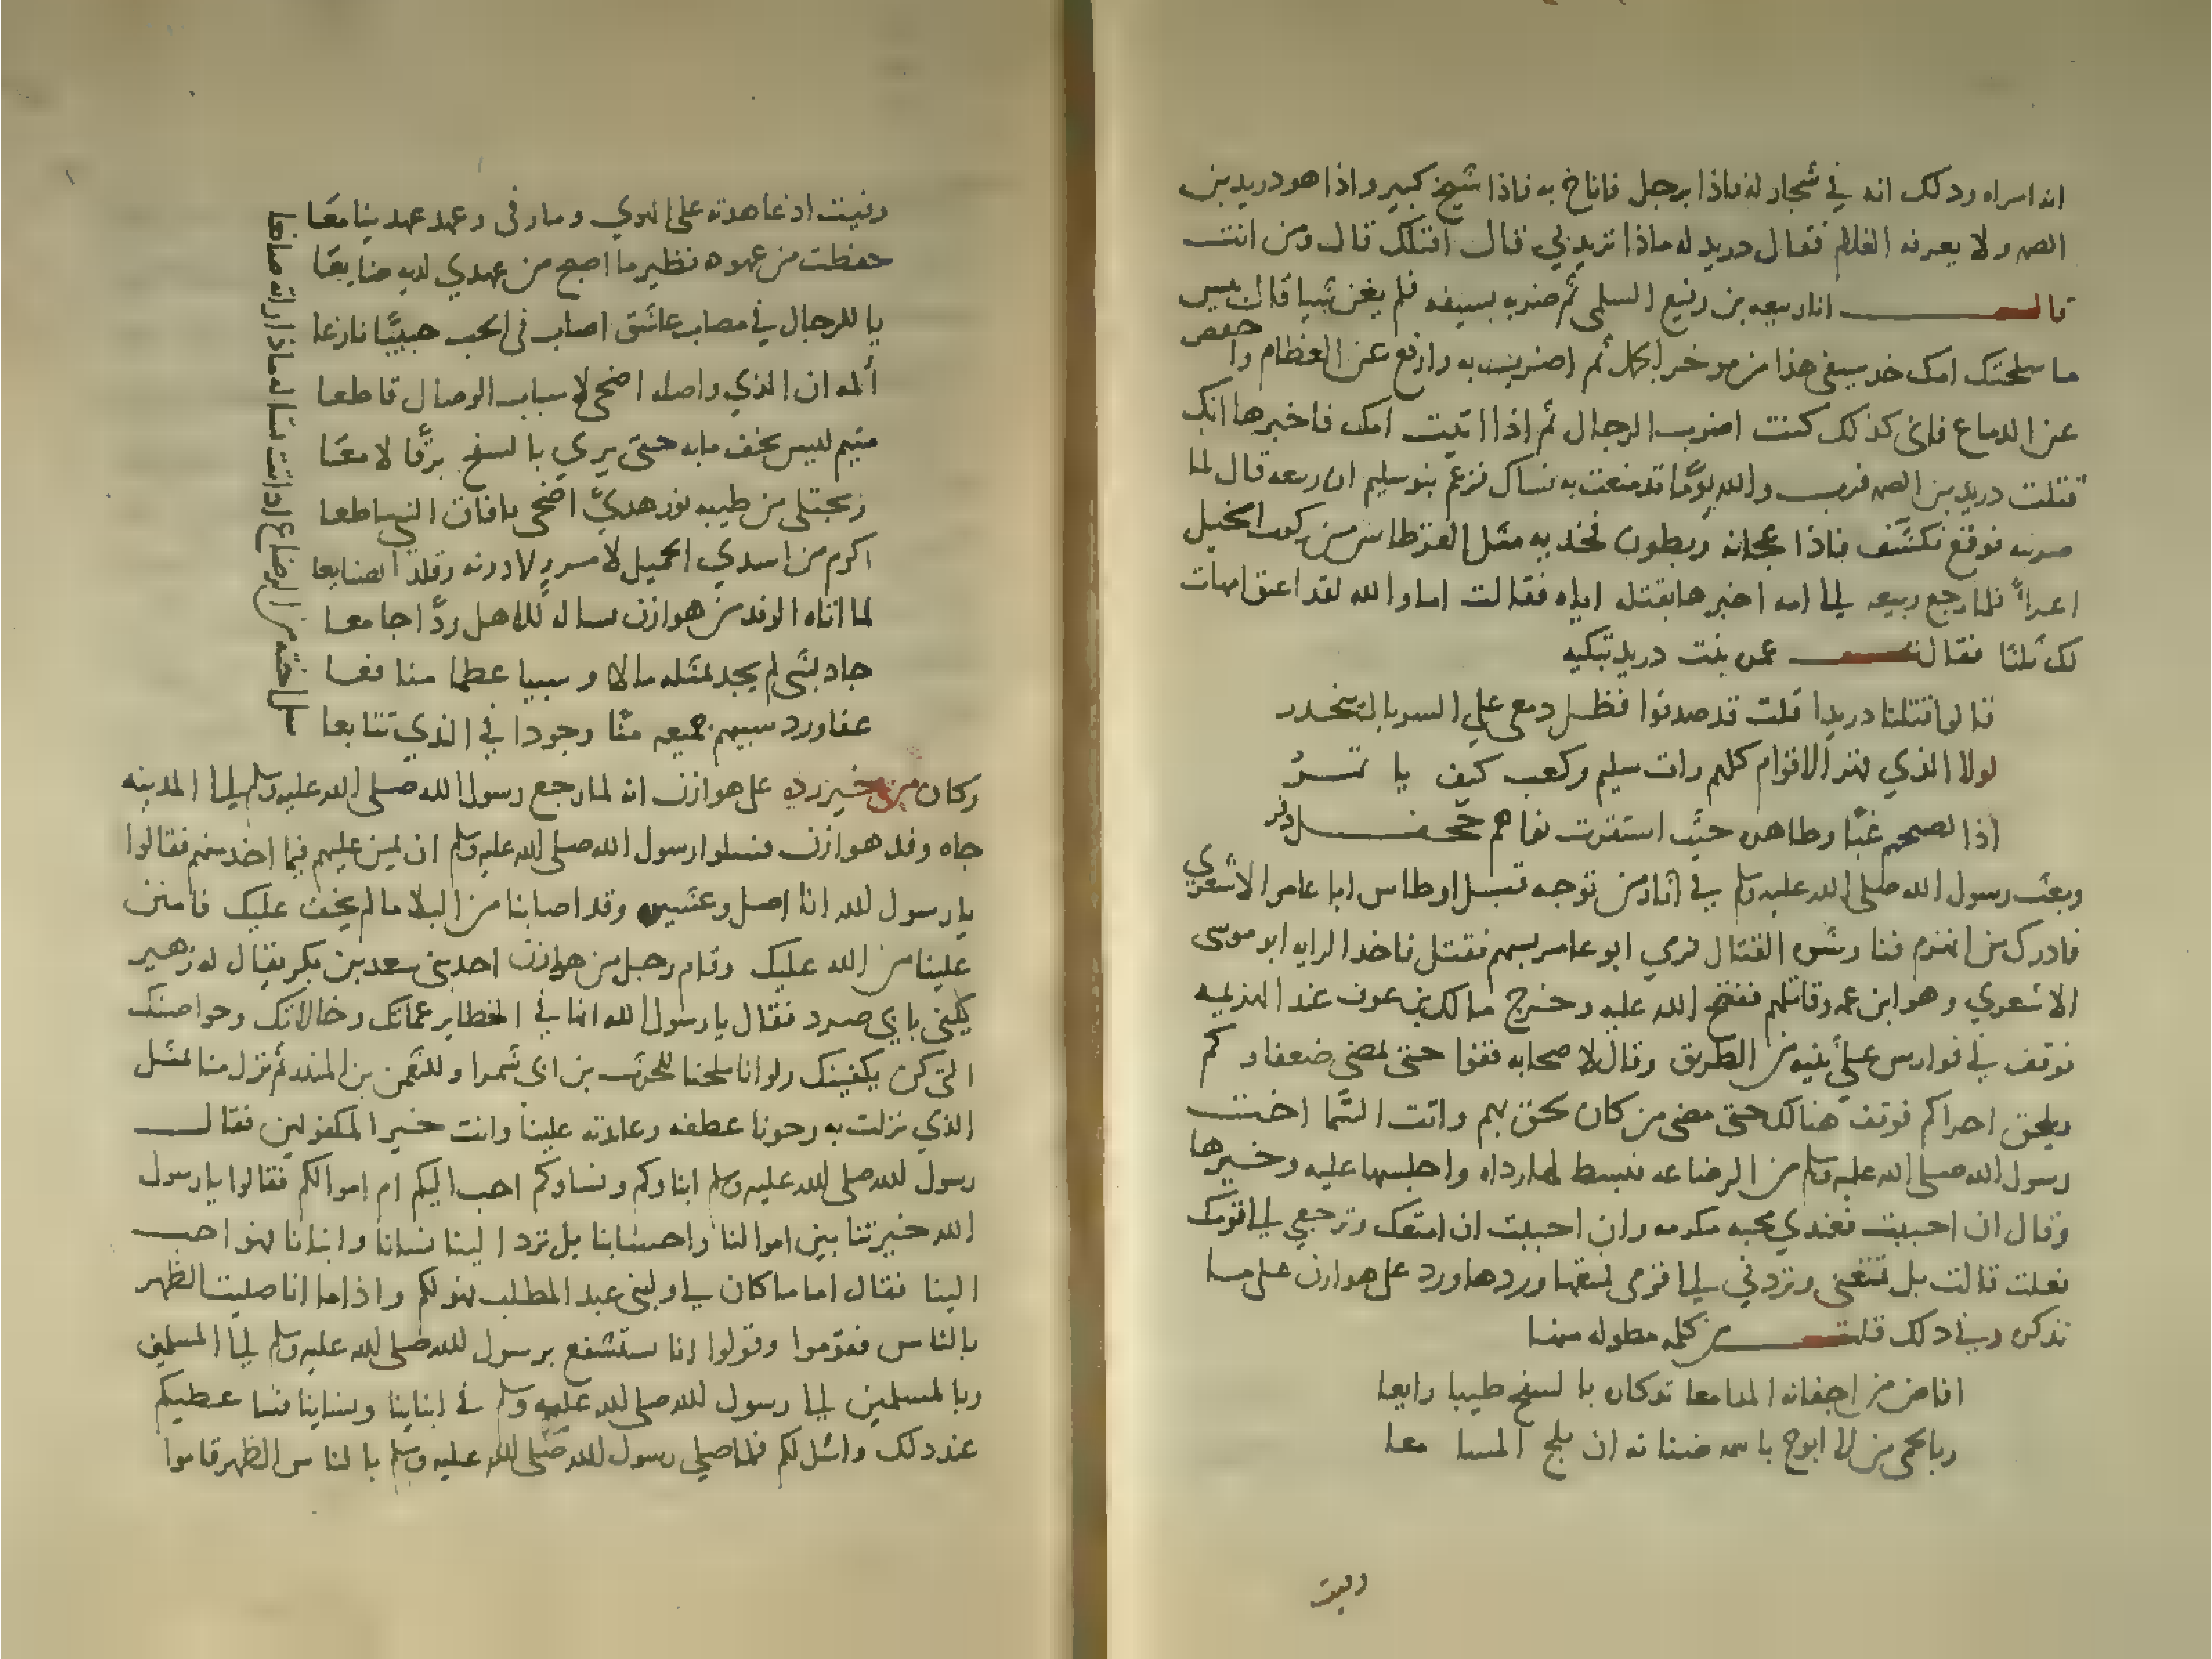 انه امراه ودلك انه في شجار له فاذا برجل فاناخ به فاذا شيخ كبير واذا هو دريد بن
الصمه ولا يعرفه الغلام فقال دريد له ماذا تريد بي قال اقتلك قال ومن انت
قال انا ربيعه بن رفيع السلمي ثم ضربه بسيفه فلم يغن شيا قال بيس
ما سلحتك امك خد سيفي هذا من موخر الرحل ثم اضرب به وارفع عن العظام واخفض
عن الدماغ فاني كذلك كنت اضرب الرجال ثم اذا اتيت امك فاخبرها انك
قتلت دريد بن الصمه فرب والله يومًا قد منعت به نساك فزعم بنو سليم ان ربيعه قال لما
ضربه فوقع تكشف فاذا عجانه وبطون فخذيه مثل القرطاس من ركوب الخيل
اعراءً فلما رجع ربيعه الى امه اخبرها بقتله اياه فقالت اما والله لقد اعتق امهات
لك ثلثا فقالت عمره بنت دريد تبكيه
قالوا قتلنا دريدا قلت قد صدقوا فظل دمعي على السربال ينحدر
لولا الذي قهر الاقوام كلهم رات سليم وكعب كيف يا تمر
اذا لصبحهم غبًا وظاهره حيث استقرت نواهم جحفل دفر
وبعث رسول الله صلى الله عليه وسلم في اثار من توجه قبل اوطاس ابا عامر الاشعري
فادرك من انهزم فناوشوه القتال فرمي ابو عامر بسهم فقتل فاخد الرايه ابو موسى
الاشعري وهو ابن عمه وقاتلهم ففتح الله عليه وخرج مالك بن عوف عند الهزيمه
فوقف في فوارس على ثنيه من الطريق وقال لاصحابه قفوا حتى تمضي ضعفاوكم
ويلحق اخراكم فوقف هنالك حتى مضى من كان لحق بهم واتت الشيما اخت
رسول الله صلى الله عليه وسلم من الرضاعه فبسط لها رداه واجلسها عليه وخيرها
وقال ان احببت فعندي محبه مكرمه وان احببت ان امتعك وترجعي الى قومك
فعلت قالت بل تمتعني وتردني الى قومي فمتعها وردها ورد على هوازن على ما
نذكره وفي دلك قلت من كلمه مطوله منها
افاض من اجفانه المدامعا تدكار بالسفح طيبا رايعا
وبالحمى من لا ابوح باسمه ضنا به ان يلج المسامعا
وفيت
وفيت اذ عاهدته على الهوي وما وفى وعهد عهد بينا معًا
حفظت من عهوده نظير ما اصبح من عهدي لديه ضايعًا
يا للرجال في مصاب عاشق اصاب فى الحب حبيبًا نازعا
ألمه ان الذي واصله اضحى لاسباب الوصال قاطعا
متيم لييس يخف ما به حتى يري بالسفح برقًا لامعًا
ويجتلى من طيبه نور هديً اضحى بافاق النهى ساطعا
اكرم من اسدي الجميل لامرءٍ لا دونه وقلد الصنايعا
لما اتاه الوفد من هوازن يساله للاهل ردًّا جامعا
جاد بشى لم يجد بمثله مالا وسبيا عظما منافعا
عفا ورد سبيهم جميعه منًا وجودا في الذي تتابعا
سل اخته من الرضاع اذ اتت تساله ماذا راته صانعا
وكان من خبر رده على هوازن انه لما رجع رسول الله صلى الله عليه وسلم الى المدينه
جاه وفد هوازن فسلوا رسول الله صلى الله عليه وسلم ان يمن عليهم فيما اخد منهم فقالوا
يا رسول الله انا اصل وعشيره وقد اصابنا من البلا ما لم يخف عليك فامنن
علينا من الله عليك وقام رجل من هوازن احد بني سعد بن بكر يقال له زهير
يكنى بابي صرد فقال يا رسول الله انما في الحظاير عماتك وخالاتك وحواضنك
التي كن يكفلنك ولو انا ملحنا للحرث بن ابي شمر او للنعمن بن المنذر ثم نزل منا بمثل
الذي نزلت به رجونا عطفه وعايدته علينا وانت خير المكفولين فقال
رسول الله صلى الله عليه وسلم ابناوكم ونساوكم احب اليكم ام اموالكم فقالوا يا رسول
الله خيرتنا بين اموالنا واحسابنا بل ترد الينا نسانا وابنانا فهو احب
الينا فقال اما ما كان لي ولبني عبد المطلب فهو لكم واذا ما انا صليت الظهر
بالناس فقوموا وقولوا انا نستشفع برسول الله صلى الله عليه وسلم الى المسلمين
وبالمسلمين الى رسول الله صلى الله عليه وسلم في ابناينا ونساينا فسا عطيكم
عند دلك واسل لكم فلما صلى رسول الله صلى الله عليه وسلم بالناس الظهر قاموا